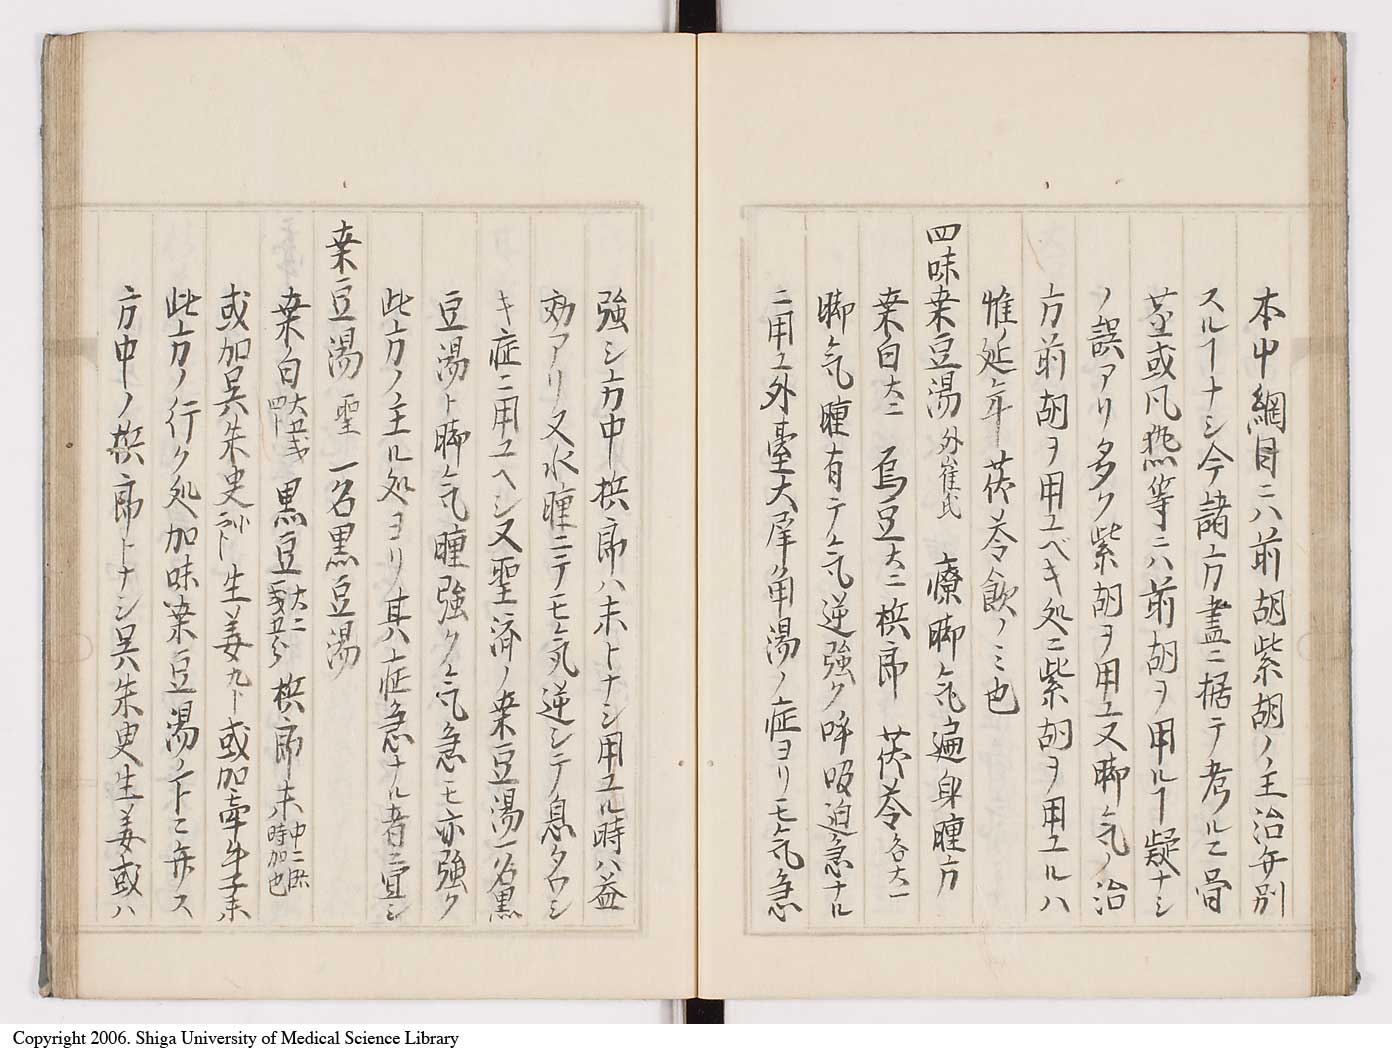 本中綱目ニハ前胡紫胡ノ主治弁別
スルヿナシ今諸方書ニ拠テ考ルニ骨
茎或凡熱等ニハ前胡ヲ用ルヿ疑ナシ
ノ誤アリ多ク紫胡ヲ用ユ又脚気ノ治
方前胡ヲ用ユベキ処ニ紫胡ヲ用ユルハ
惟延年茯苓飲ノミ也
四味桒豆湯 外崔氏 療脚気遍身腫方
桒白大二 烏豆大二 梹郎 茯苓各大一
脚気腫有テ気逆強ク呼吸迫急ナル
ニ用ユ外臺大犀角湯ノ症ヨリモ気急
強シ方中梹郎ハ末トナシ用ユル時ハ益
効アリ又水腫ニテモ気逆シテ息タワシ
キ症ニ用ユヘシ又聖済ノ桒豆湯一名黒
豆湯ト脚気腫強ク気急モ亦強ク
此方ノ主ル処ヨリ其症急ナル者ニ宜シ
桒豆湯 聖 一名黒豆湯
桒白 黒豆 大二 梹郎末 中二 時加也
或加呉朱叓 生姜 九卜 或加牽牛子末
此方ノ行ク処加味桒豆湯ノ下ニ弁ス
方中ノ梹郎トナシ呉朱叓生姜或ハ
Copyright 2006. Shiga University of Medical Science Library